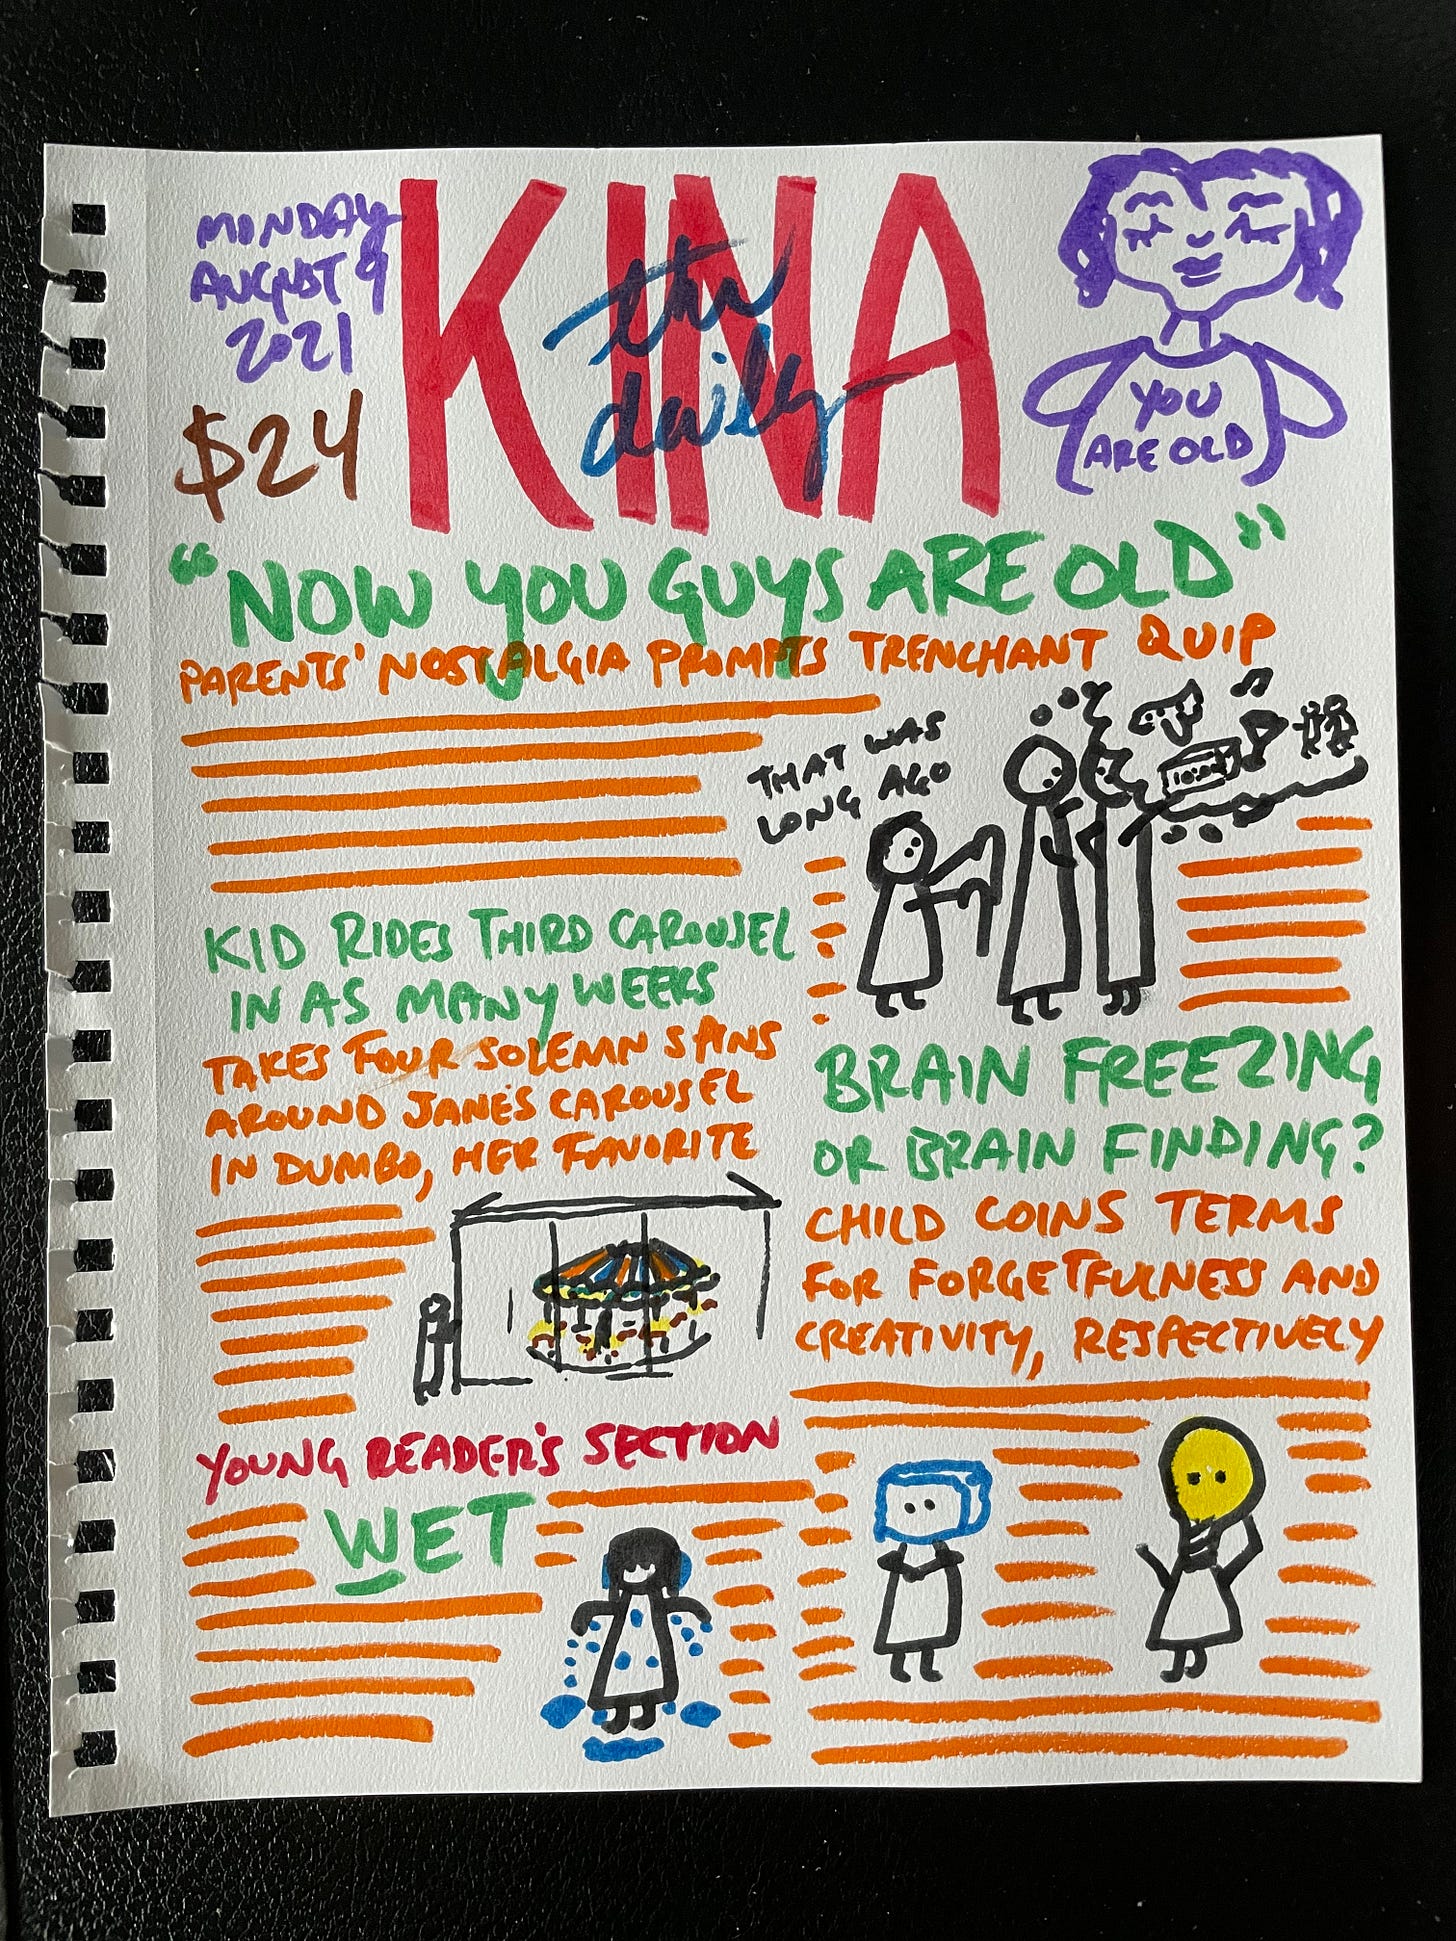 MONDAY
AUGUST 9
2021
$24
KINA
the
daily
YOU
ARE OLD
"NOW YOU GUYS ARE OLD"
PARENTS' NOSTALGIA PROMPTS TRENCHANT QUIP
THAT WAS
LONG AGO
10:00
KID RIDES THIRD CAROUSEL
IN AS MANY WEEKS
TAKES FOUR SOLEMN SPINS
AROUND JANE'S CAROUSEL
IN DUMBO, HER FAVORITE
BRAIN FREEZING
OR BRAIN FINDING?
CHILD COINS TERMS
FOR FORGETFULNESS AND
CREATIVITY, RESPECTIVELY
YOUNG READER'S SECTION
WET